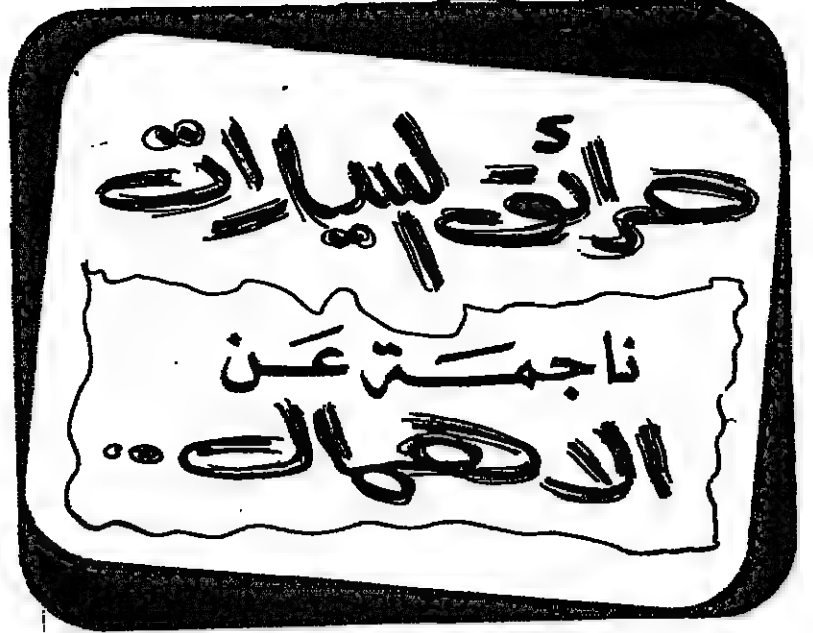 حرائق السيارات
ناجمة عَن
الاهمال ..